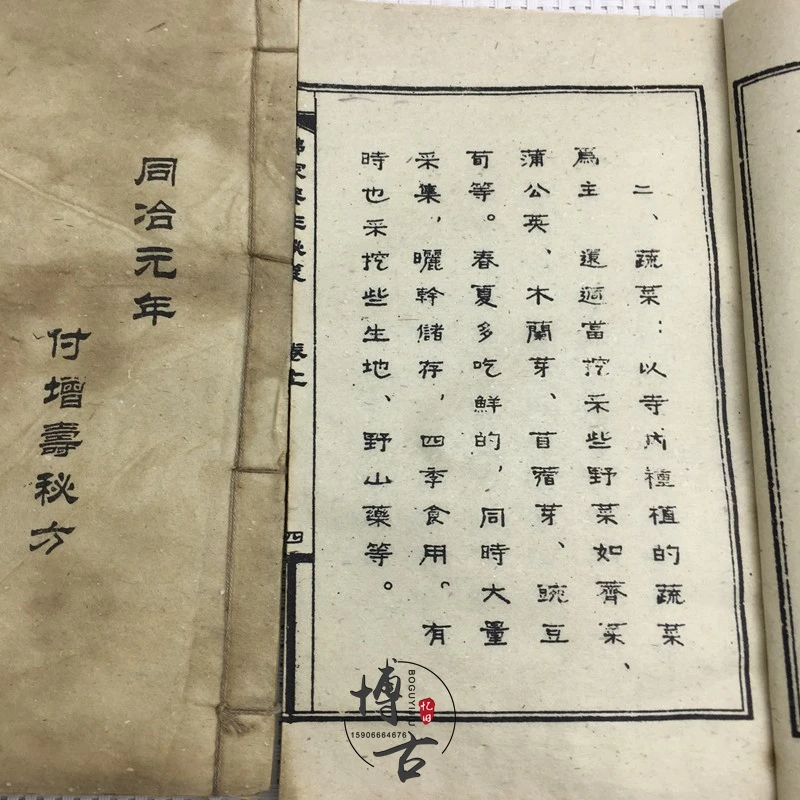 二、蔬菜：以寺内種植的蔬菜
爲主 還適當挖采些野菜如薺菜、
蒲公英、木蘭芽、苜蓿芽、豌豆
荀等。春夏多吃鮮的，同時大量
采集，曬幹儲存，四季食用。有
時也采挖些生地、野山藥等。
卷上
四
同治元年
付增壽秘方
博古
BOGUYIJIU
忆旧
15906664676